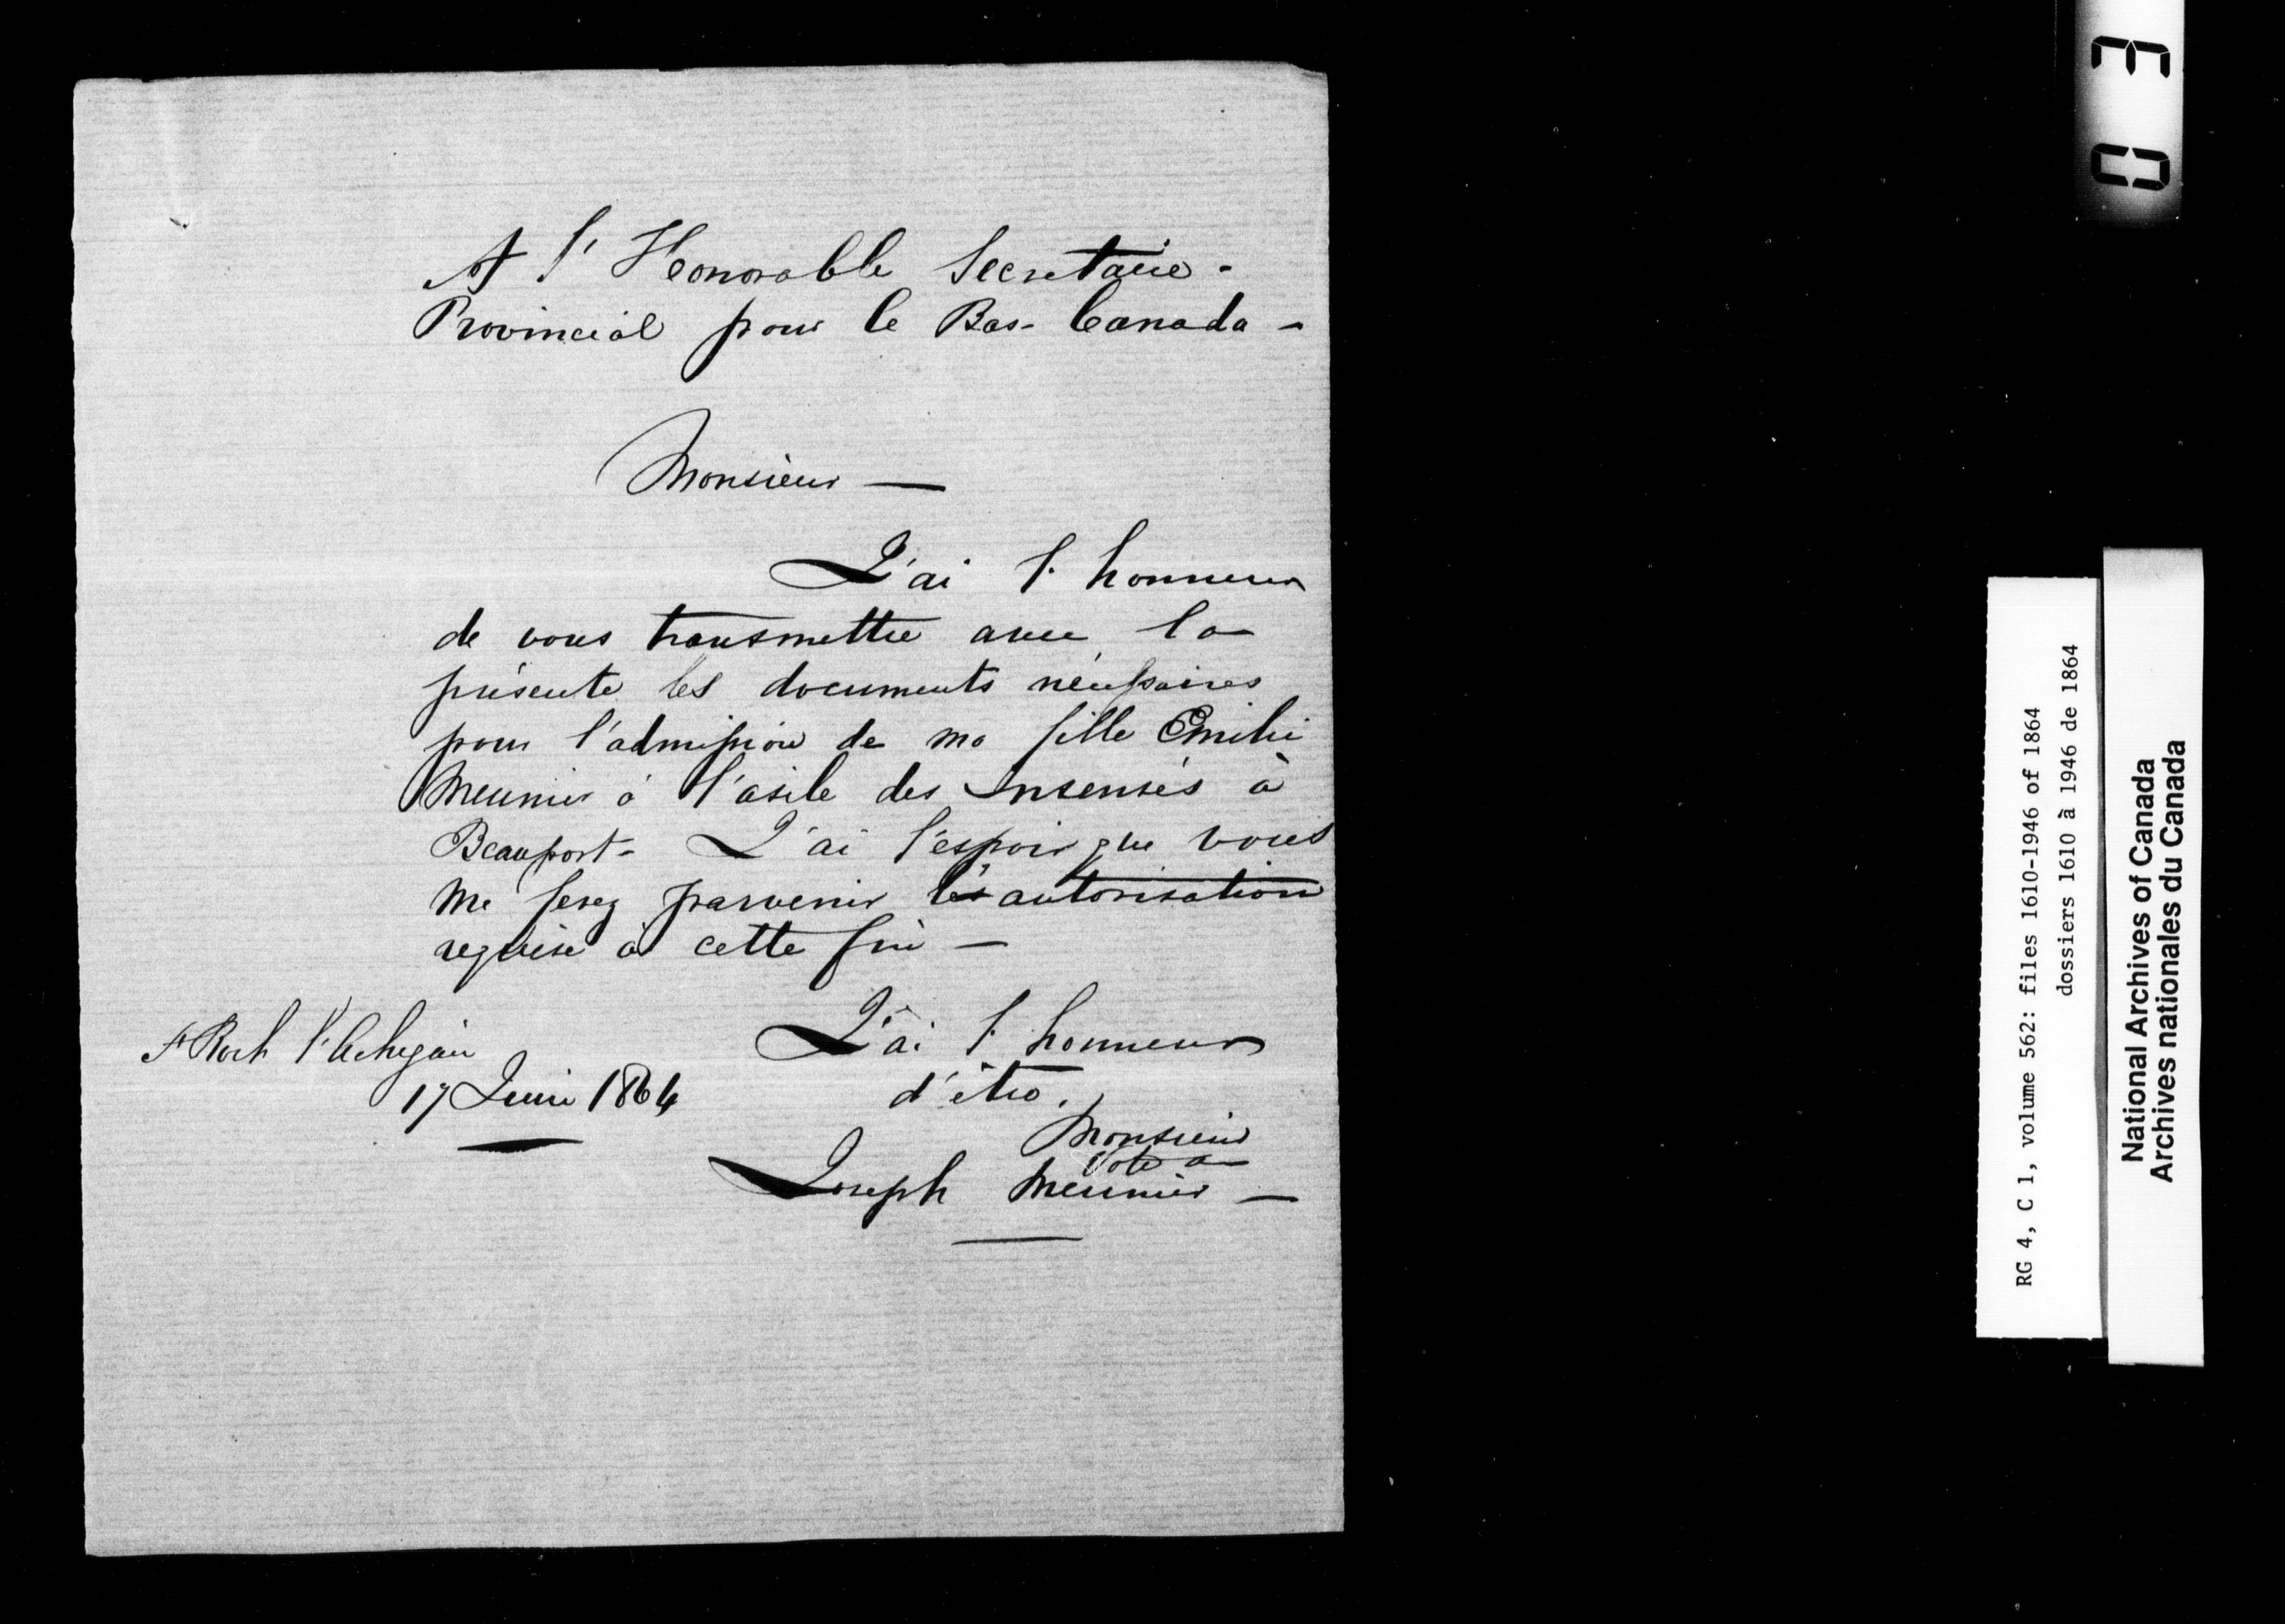 A l'Honorable Secretaire -
Provincial pour le Bas-Canada -
Monsieur —
J'ai l'honneur
de vous transmettre avec la
présente les documents nécessaires
pour l'admission de ma fille Emilie
Meunier à l'asile des Insensés à
Beauport - J'ai l'espoir que vous
me ferez parvenir les autorisation
requise à cette fin —
St Roch l'Achigan
17 Juin 1864
J'ai l'honneur
d'être,
Monsieur
Votre
Joseph Meunier —
03
RG 4, C 1, volume 562: files 1610-1946 of 1864
dossiers 1610 à 1946 de 1864
National Archives of Canada
Archives nationales du Canada